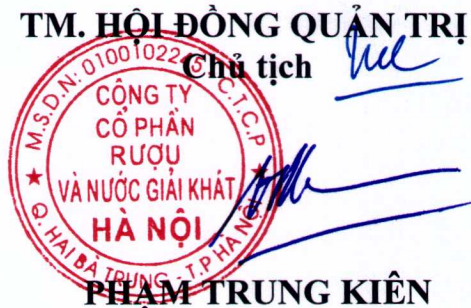 TM. HỘI ĐỒNG QUẢN TRỊ
Chủ tịch
M.S.D.N: 0100102245 - C.T.C.P
CÔNG TY
CỔ PHẦN
RƯỢU
VÀ NƯỚC GIẢI KHÁT
HÀ NỘI
Q. HAI BÀ TRƯNG - T.P HÀ NỘI
PHẠM TRUNG KIÊN